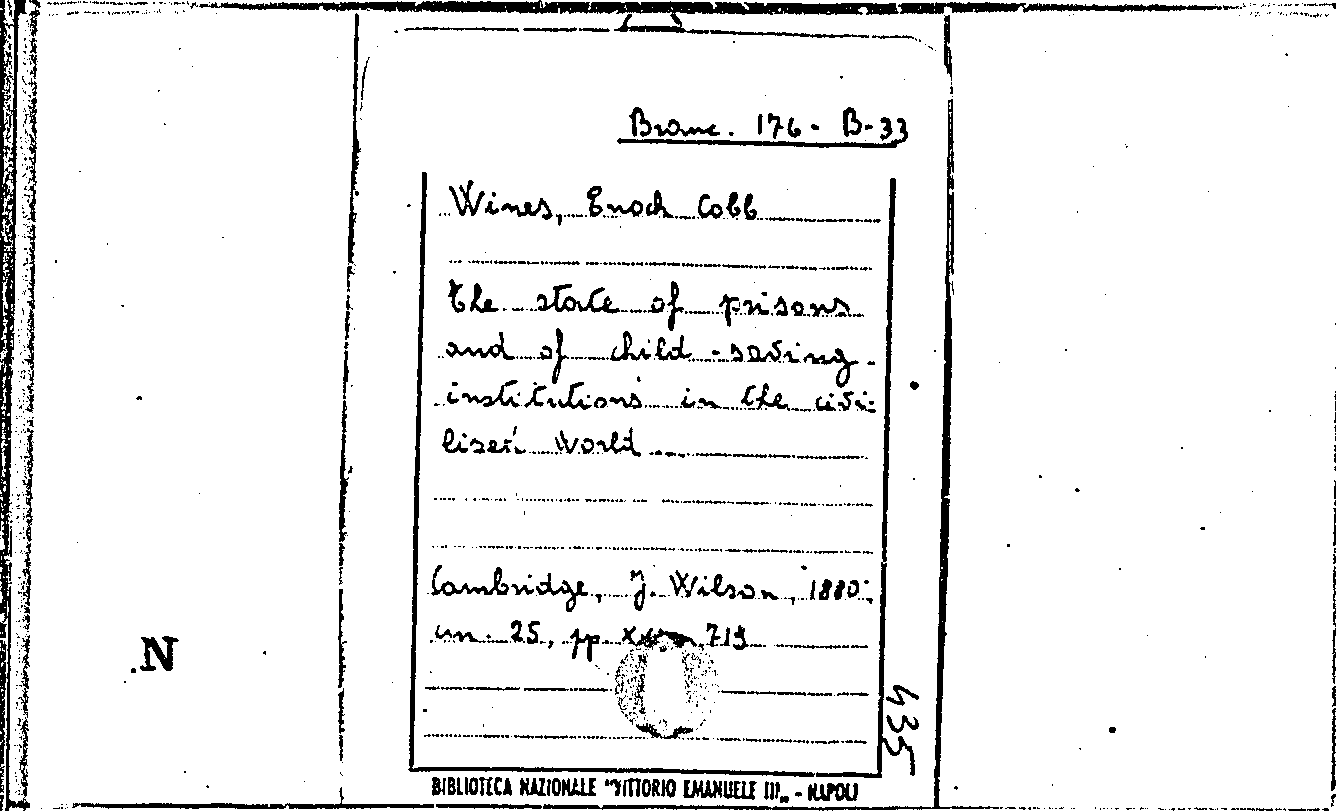 Branc. 176 - B-33
Wines, Enoch Cobb
The state of prisons
and of child-saving
institutions in the civi-
lised World ....
Cambridge, J. Wilson, 1880;
cm. 25, pp. 719
435
.N
BIBLIOTECA NAZIONALE "VITTORIO EMANUELE III„ - NAPOLI